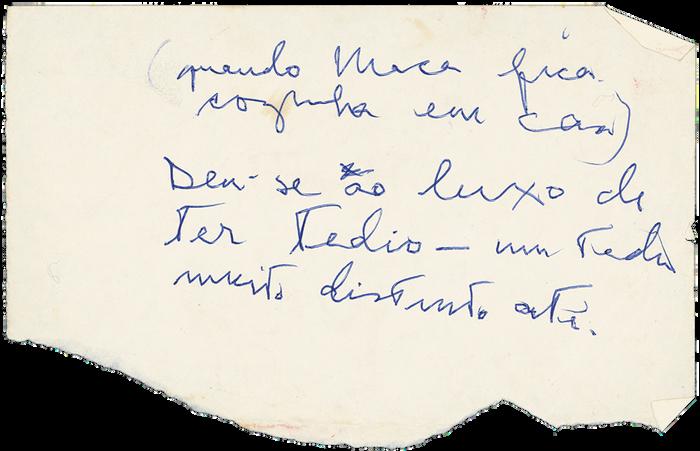 (quando Maca fica
sozinha em casa)
Deu-se ao luxo de
ter tedio — um tedio
muito distinto até.